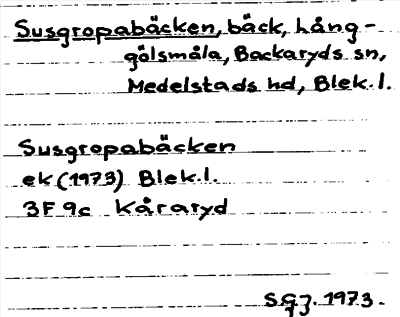 Susgropabäcken, bäck, Lång-
gölsmåla, Backaryds sn,
Medelstads hd, Blek.l.
Susgropabäcken
ek (1973) Blek.l.
3F 9c Kåraryd
SGJ. 1973.